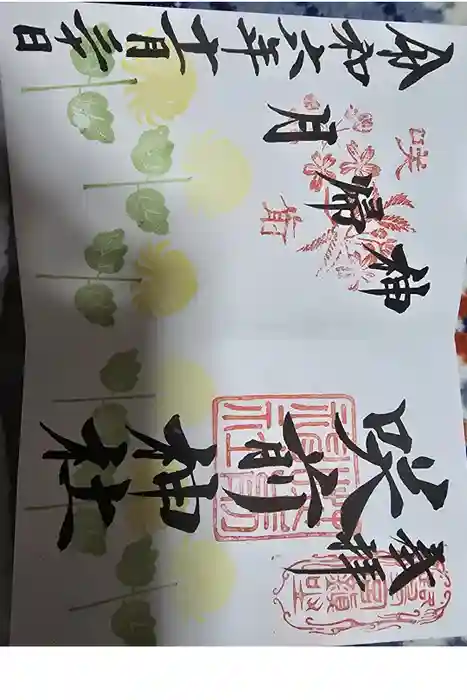 奉拝
咲前神社
神帰月
咲
令和六年十一月三十日